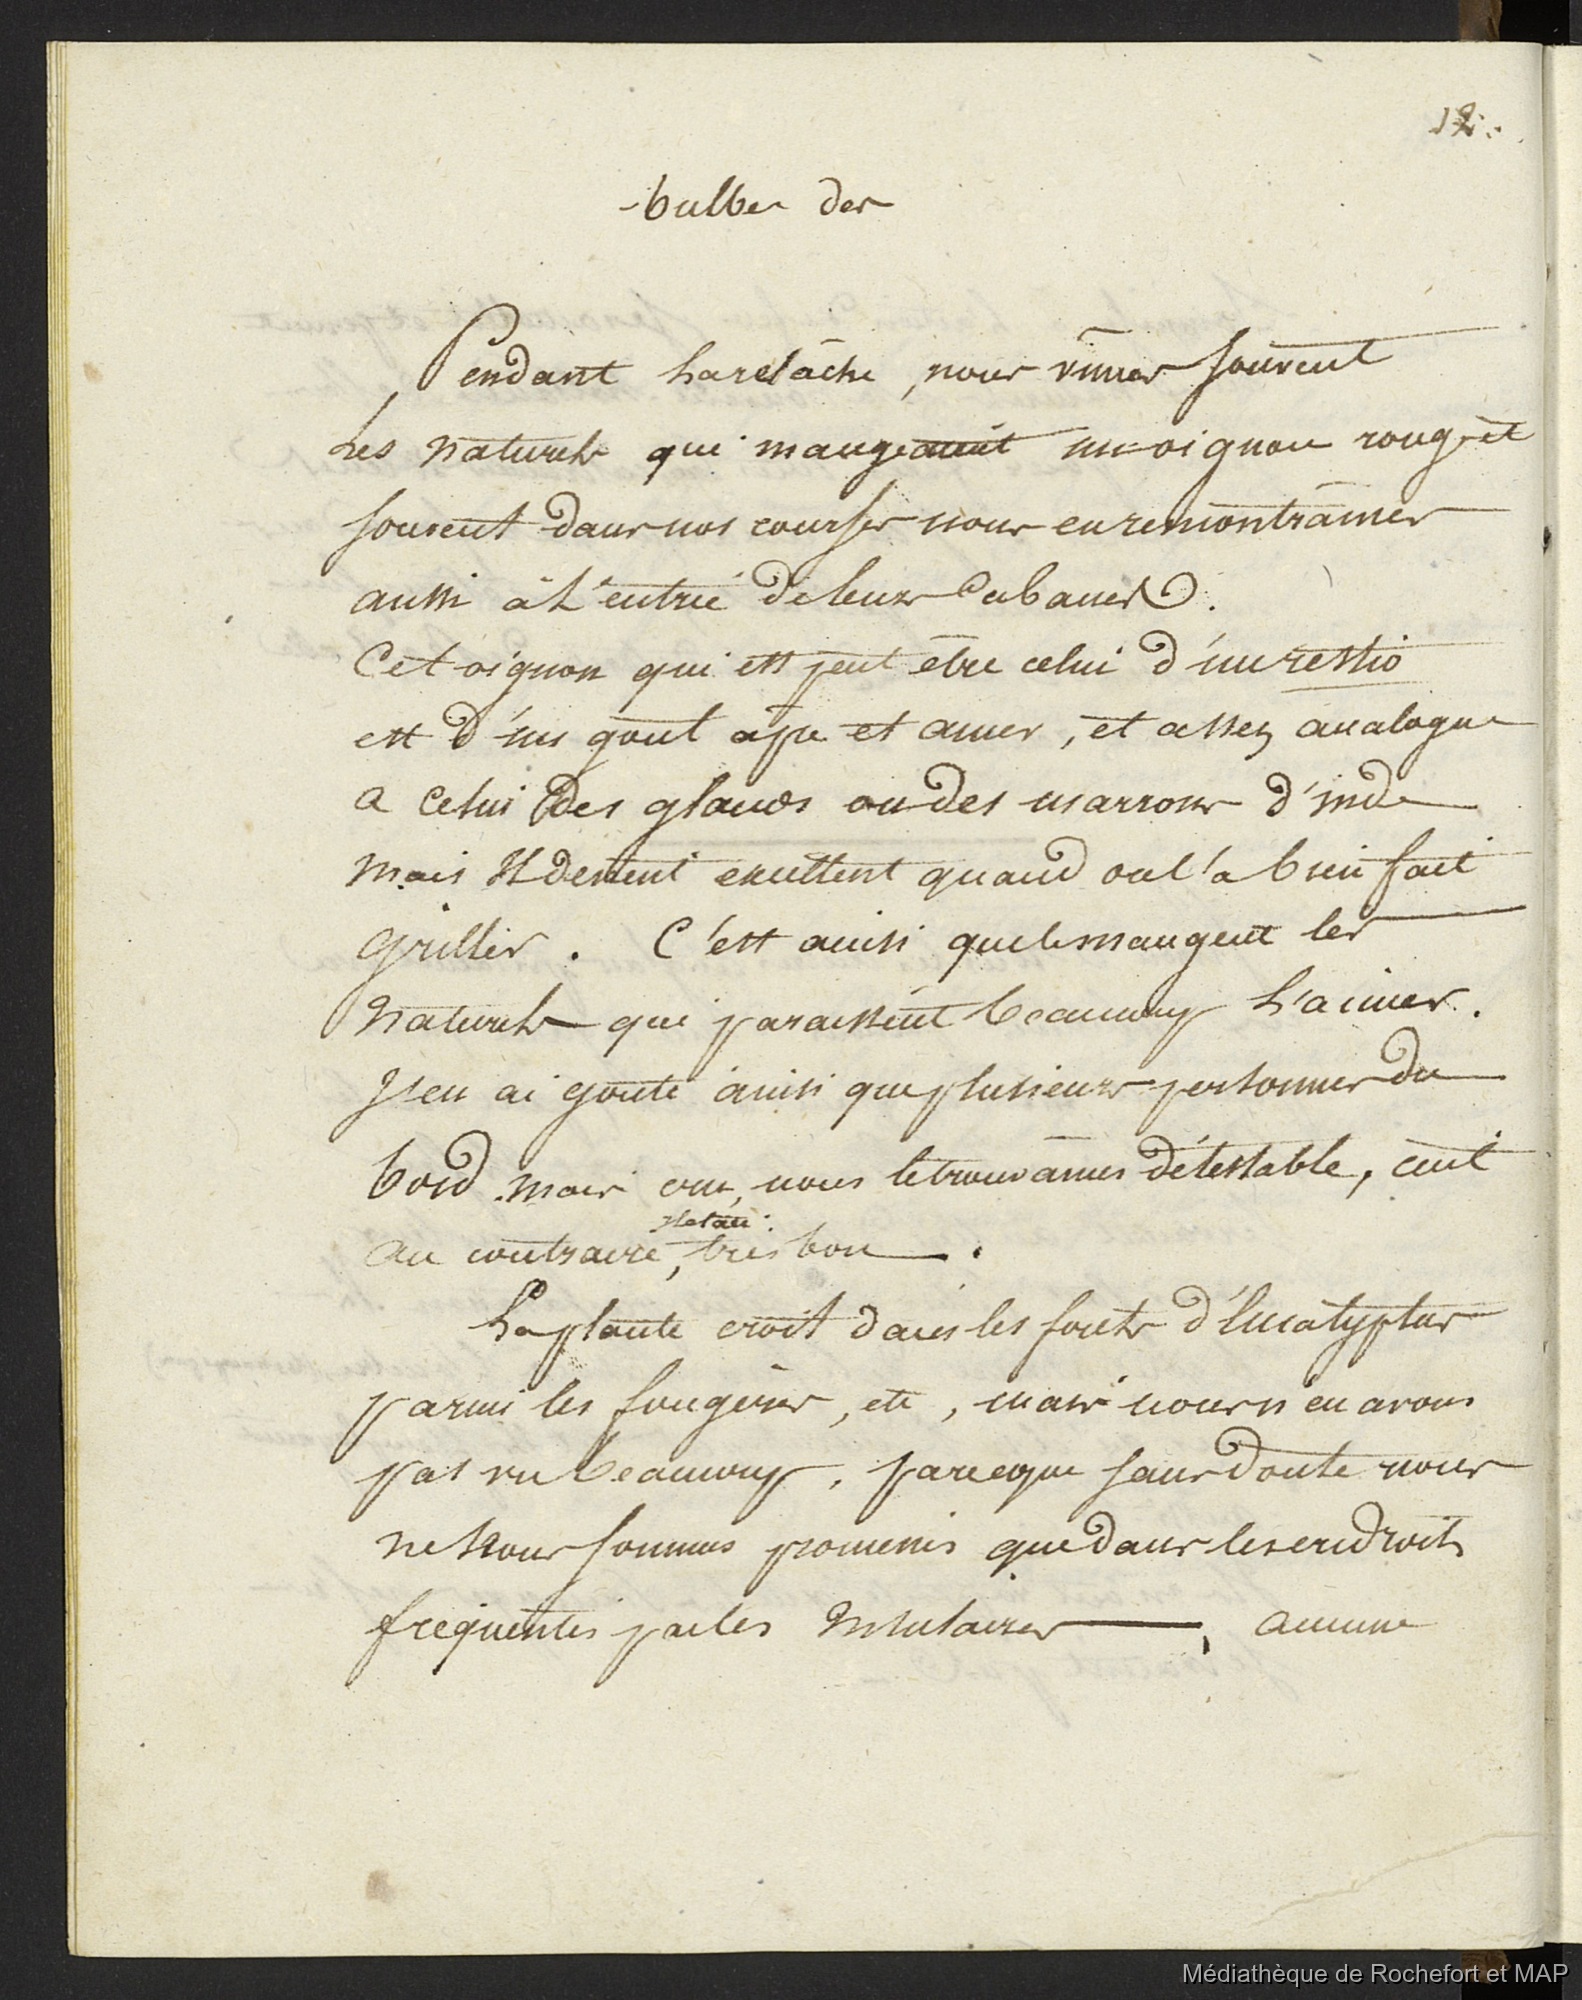 12.
bulbes des
Pendant La relâche, nous vîmes souvent
Les naturels qui mangeaient un oignon rouge et
souvent dans nos courses nous en remontrâmes
aussi à L'entrée de leurs Cabanes.
Cet oignon qui est peut être celui d'un restio
est d'un goût âpre et amer, et assez analogue
a celui des glands ou des marrons d'inde
mais Il devient excellent quand on l'a bien fait
griller. C'est ainsi que le mangent les
Naturels qui paraissent beaucoup L'aimer.
J'en ai gouté ainsi que plusieurs personnes du
bord mais cru, nous le trouvâmes détestable, cuit
Il était
au contraire, très bon.
La plante croit dans les forêts d'Eucalyptus
parmi les fougères, etc, mais nous n'en avons
pas vu beaucoup, parceque sans doute nous
ne nous sommes promenés que dans les endroits
fréquentés par les Insulaires, aucune
Médiathèque de Rochefort et MAP